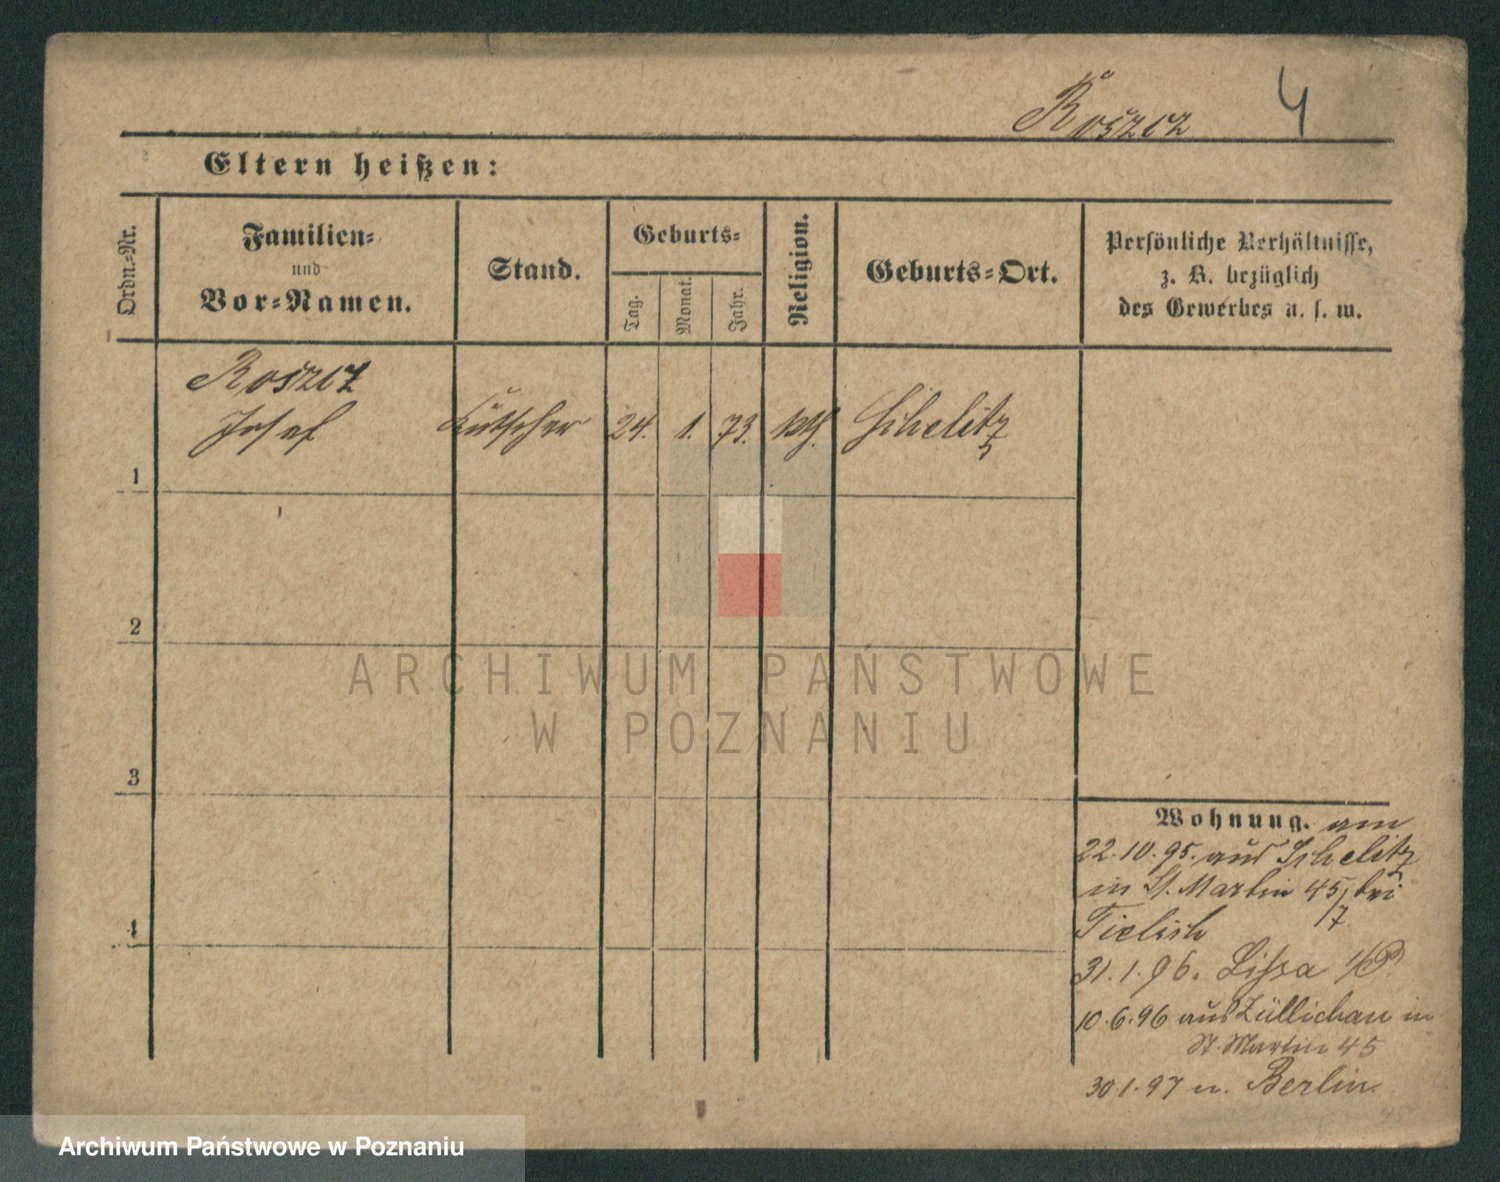 Roszcz 4
Eltern heißen:
Ordn.-Nr.
Familien-
und
Vor-Namen.
Stand.
Geburts-
Tag.
Monat.
Jahr.
Religion.
Geburts-Ort.
Persönliche Verhältnisse,
z. B. bezüglich
des Gewerbes u. s. w.
Roszcz
Josef Kutscher 24. 1. 73. kth. Schelitz
1
2
3
4
ARCHIWUM PAŃSTWOWE
W POZNANIU
Wohnung. am
22.10.95. aus Schelitz
in St. Martin 45/7 bei
Tielsch
31.1.96. Lissa i/P.
10.6.96 aus Züllichau in
St. Martin 45
30.1.97 n. Berlin
Archiwum Państwowe w Poznaniu